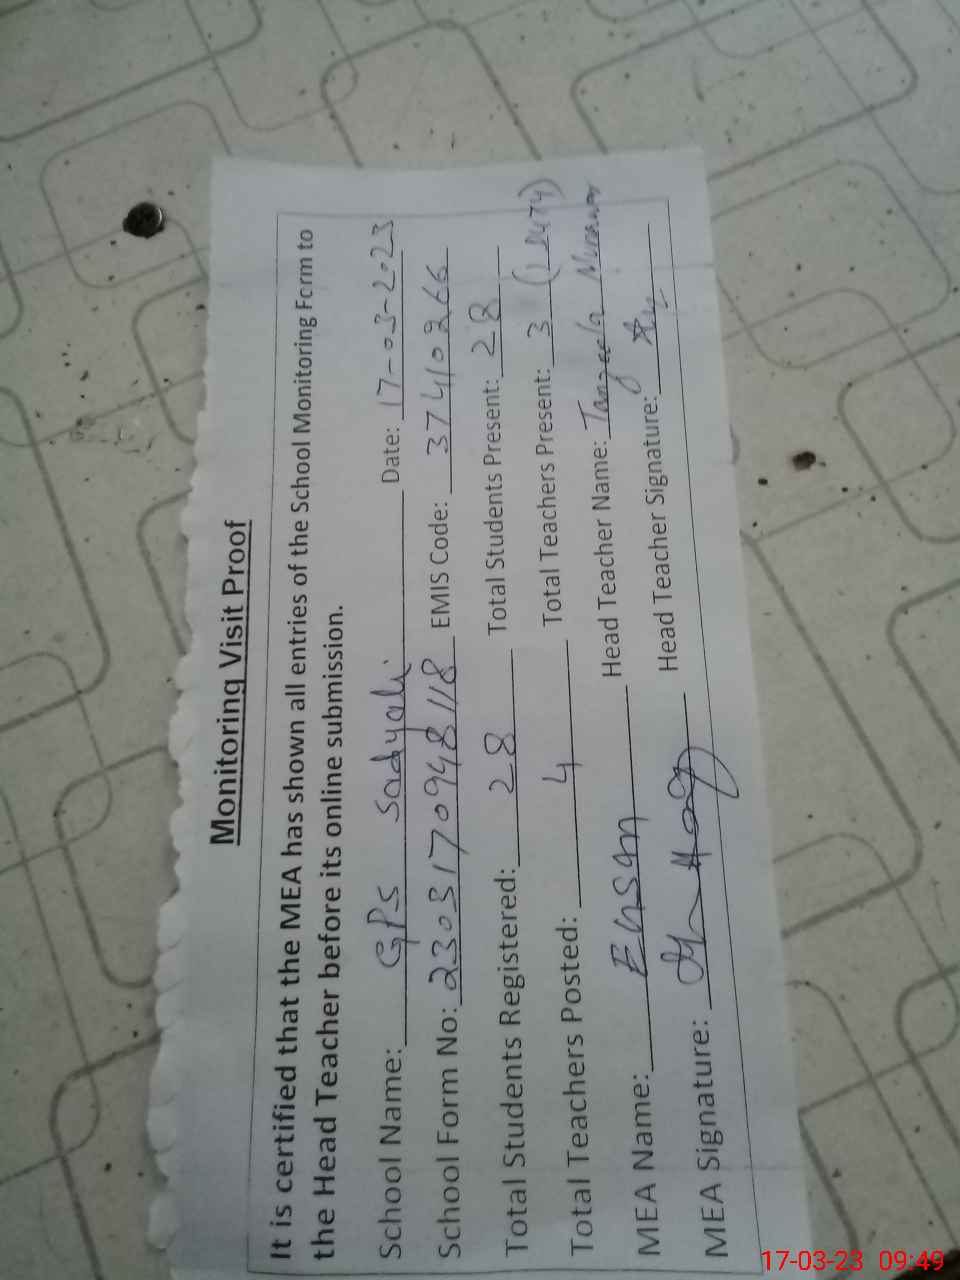 Monitoring Visit Proof
It is certified that the MEA has shown all entries of the School Monitoring Form to
the Head Teacher before its online submission.
School Name: GPS Sadyali Date: 17-03-2023
School Form No: 2303170948118 EMIS Code: 37410266
Total Students Registered: 28 Total Students Present: 28
Total Teachers Posted: 4 Total Teachers Present: 3 (1 DUTY)
MEA Name: Ehsan Head Teacher Name: Tanzeela
MEA Signature: Head Teacher Signature:
17-03-23 09:49